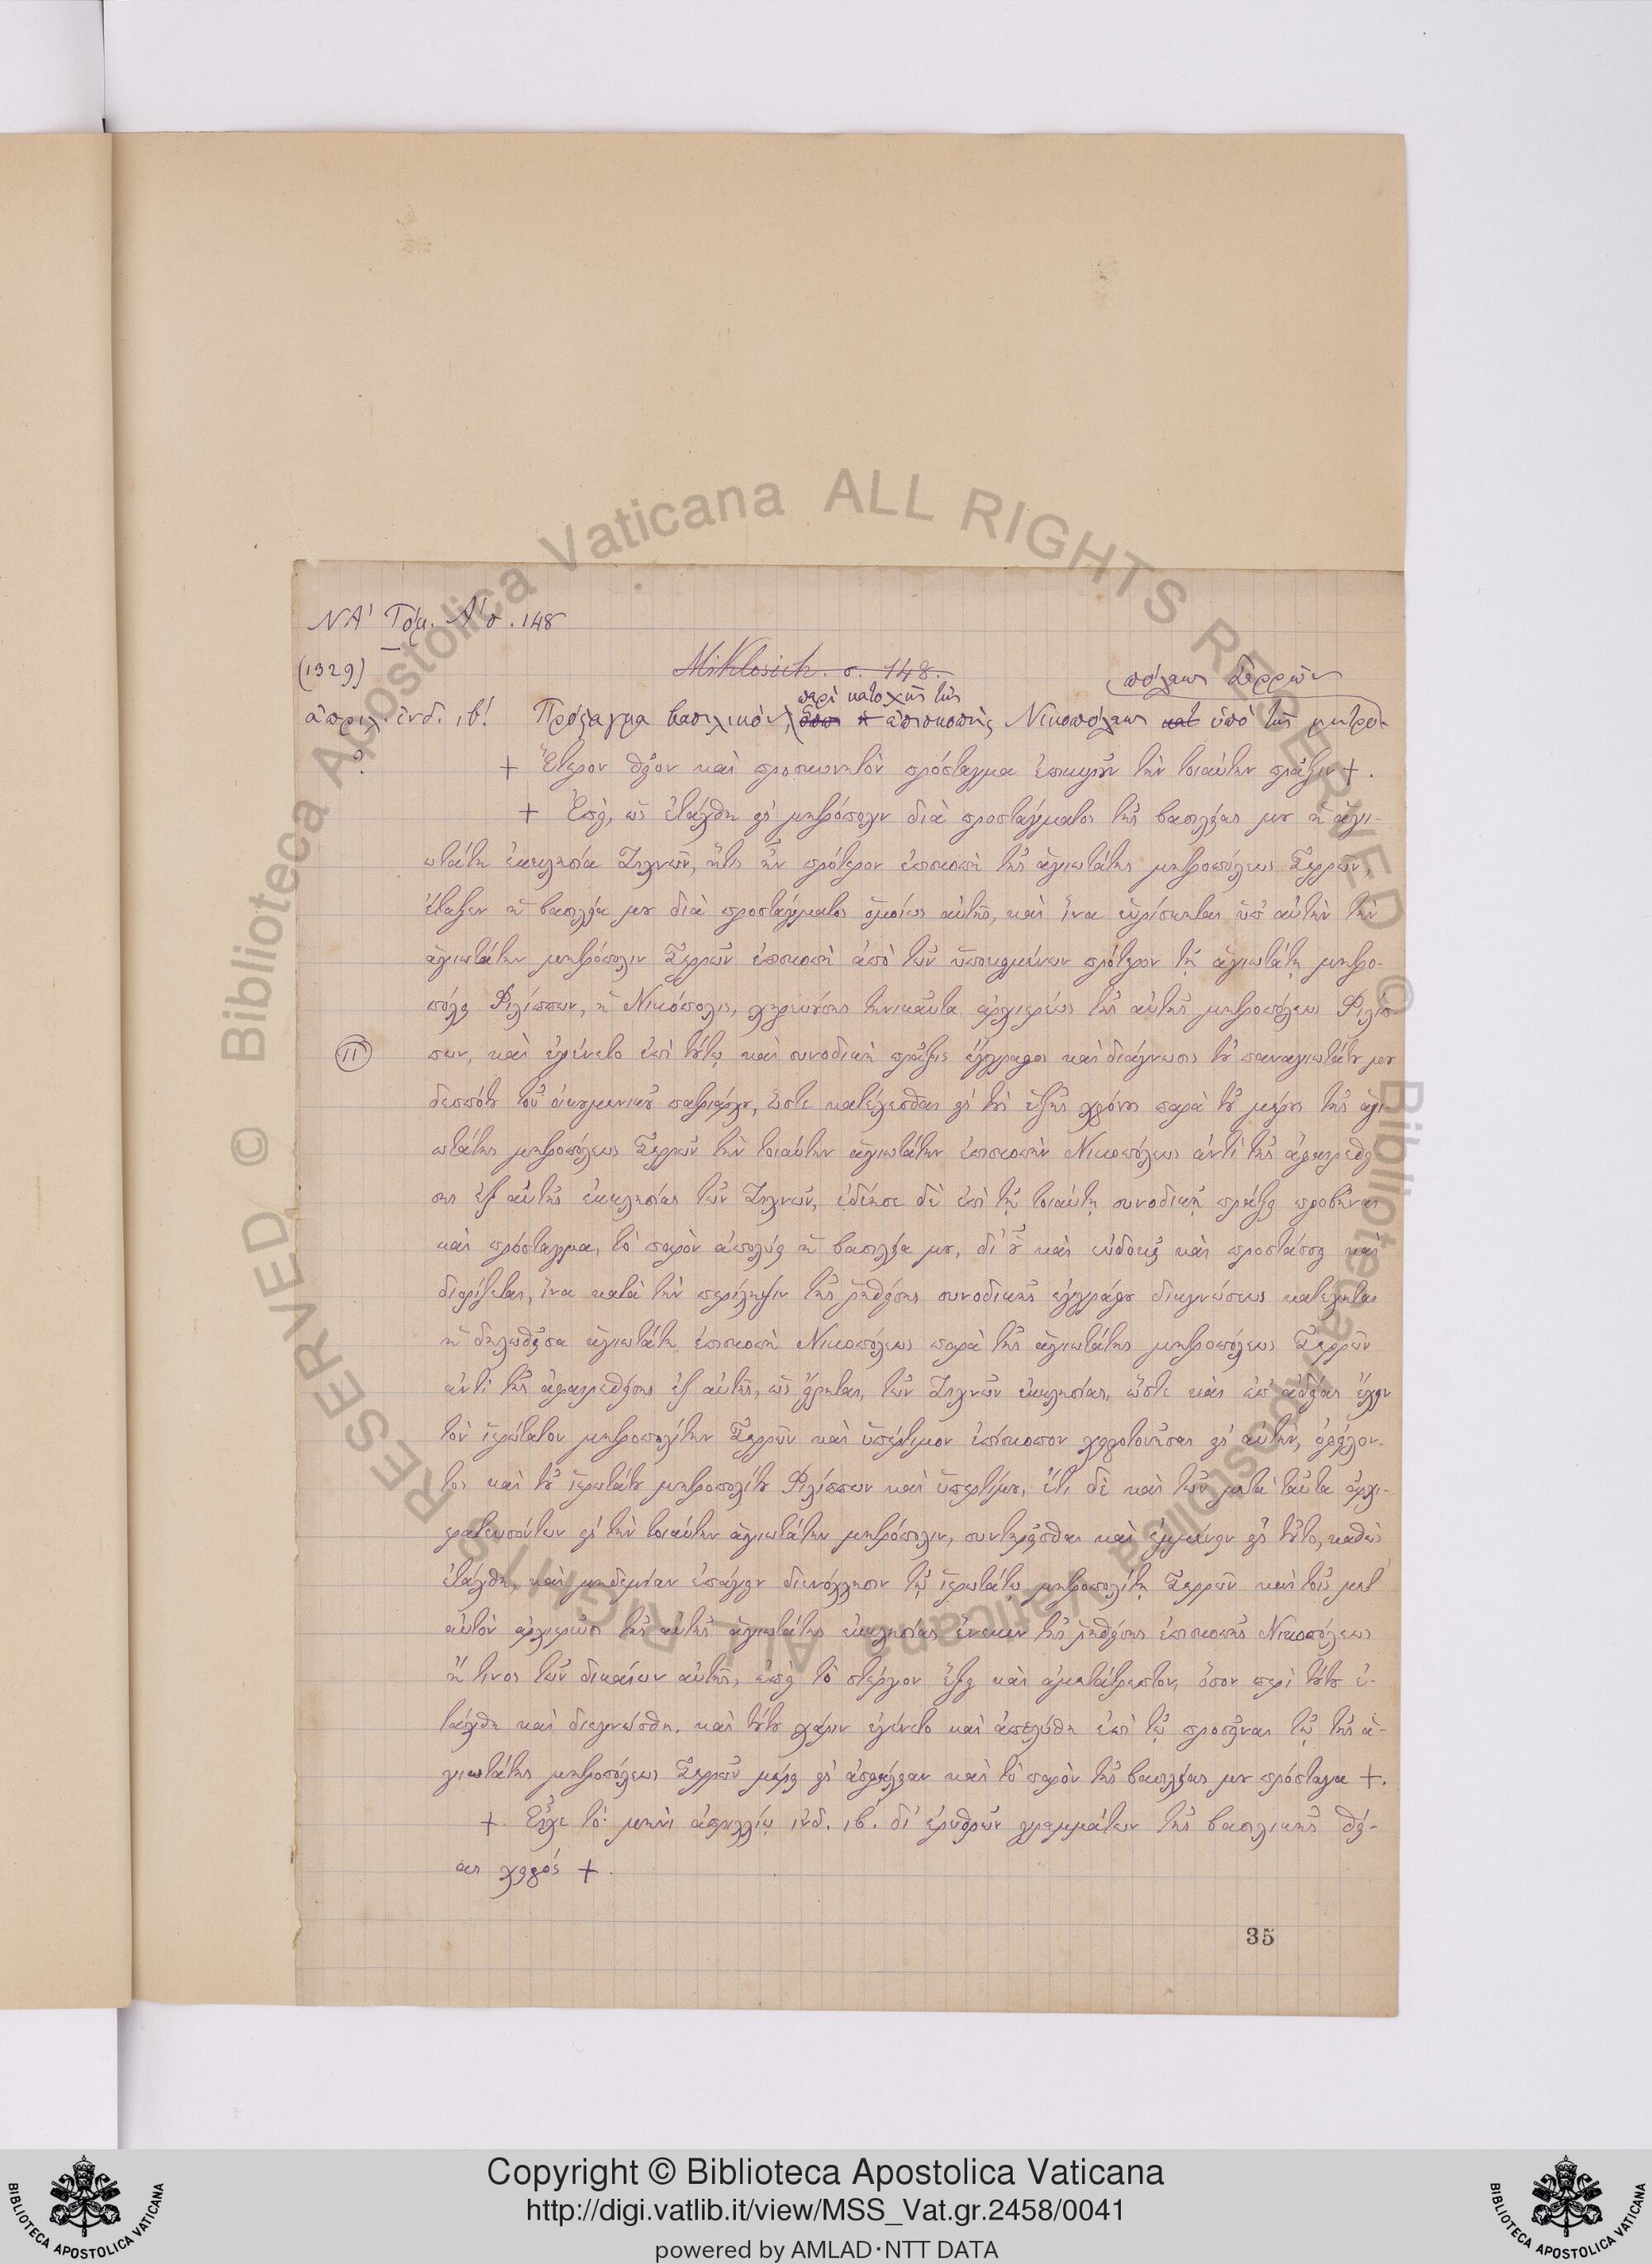 ΝΑ' Τόμ. Α' σ. 148
(1329)
Miklosich. σ. 148.
περὶ κατοχῆς τῆς
πόλεως Σερρῶν
ἀπριλ. ἰνδ. ιβ'. Πρόσταγμα βασιλικόν, ἐπισκοπῆς Νικοπόλεως ὑπὸ τῆς μητρο-
?
+ Ἕτερον θεῖον καὶ προσκυνητὸν πρόσταγμα ἐπικυροῦν τὴν τοιαύτην πρᾶξιν +.
+ Ἐπεὶ, ὡς ἐτάχθη εἰς μητρόπολιν διὰ προστάγματος τῆς βασιλείας μου ἡ ἁγι-
ωτάτη ἐκκλησία Ζιχνῶν, ἥτις ἦν πρότερον ἐπισκοπὴ τῆς ἁγιωτάτης μητροπόλεως Σερρῶν,
ἔταξεν ἡ βασιλεία μου διὰ προστάγματος ὁμοίως αὐτῆς, καὶ ἵνα εὑρίσκηται ὑπ' αὐτὴν τὴν
ἁγιωτάτην μητρόπολιν Σερρῶν ἐπισκοπὴ ἀπὸ τῶν ὑποκειμένων πρότερον τῇ ἁγιωτάτῃ μητρο-
πόλει Φιλίππων, ἡ Νικόπολις, χηρευούσης τηνικαῦτα ἀρχιερέως τῆς αὐτῆς μητροπόλεως Φιλίπ-
11
πων, καὶ ἐγένετο ἐπὶ τούτῳ καὶ συνοδικὴ πρᾶξις ἔγγραφος καὶ διάγνωσις τοῦ παναγιωτάτου μου
δεσπότου τοῦ οἰκουμενικοῦ πατριάρχου, ὥστε κατέχεσθαι εἰς τοὺς ἑξῆς χρόνους παρὰ τοῦ μέρους τῆς ἁγι-
ωτάτης μητροπόλεως Σερρῶν τὴν τοιαύτην ἁγιωτάτην ἐπισκοπὴν Νικοπόλεως ἀντὶ τῆς ἀφαιρεθεί-
σης ἐξ αὐτῆς ἐκκλησίας τῶν Ζιχνῶν, ἐδέησε δὲ ἐπὶ τῇ τοιαύτῃ συνοδικῇ πράξει προβῆναι
καὶ πρόσταγμα, τὸ παρὸν ἀπολύει ἡ βασιλεία μου, δι' οὗ καὶ εὐδοκεῖ καὶ προστάσσει καὶ
διορίζεται, ἵνα κατὰ τὴν περίληψιν τῆς ῥηθείσης συνοδικῆς ἐγγράφου διαγνώσεως κατέχηται
ἡ δηλωθεῖσα ἁγιωτάτη ἐπισκοπὴ Νικοπόλεως παρὰ τῆς ἁγιωτάτης μητροπόλεως Σερρῶν
ἀντὶ τῆς ἀφαιρεθείσης ἐξ αὐτῆς, ὡς εἴρηται, τῶν Ζιχνῶν ἐκκλησίας, ὥστε καὶ ἐπ' ἀδείας ἔχειν
τὸν ἱερώτατον μητροπολίτην Σερρῶν καὶ ὑπέρτιμον ἐπίσκοπον χειροτονῆσαι εἰς αὐτὴν, ὀφείλον-
τος καὶ τοῦ ἱερωτάτου μητροπολίτου Φιλίππων καὶ ὑπερτίμου, ἔτι δὲ καὶ τῶν μετὰ ταῦτα ἀρχι-
ερατευσόντων εἰς τὴν τοιαύτην ἁγιωτάτην μητρόπολιν, συντηρεῖσθαι καὶ ἐμμένειν εἰς τοῦτο, καθὼς
ἐτάχθη, καὶ μηδεμίαν ἐπάγειν διενόχλησιν τῷ ἱερωτάτῳ μητροπολίτῃ Σερρῶν καὶ τοῖς μετ'
αὐτὸν ἀρχιερεῦσι τῆς αὐτῆς ἁγιωτάτης ἐκκλησίας ἕνεκεν τῆς ῥηθείσης ἐπισκοπῆς Νικοπόλεως
ἤ τινος τῶν δικαίων αὐτῆς, ἐπεὶ τὸ στέργον ἕξει καὶ ἀμετάτρεπτον, ὅσον περὶ τούτου ἐ-
τάχθη καὶ διεγνώσθη. καὶ τούτου χάριν ἐγένετο καὶ ἀπελύθη ἐπὶ τῷ προσεῖναι τῷ τῆς ἁ-
γιωτάτης μητροπόλεως Σερρῶν μέρει εἰς ἀσφάλειαν καὶ τὸ παρὸν τῆς βασιλείας μου πρόσταγμα +.
+ Εἶχε τό· μηνὶ ἀπριλλίῳ ἰνδ. ιβ'. δι' ἐρυθρῶν γραμμάτων τῆς βασιλικῆς θεί-
ας χειρός +.
35
Copyright © Biblioteca Apostolica Vaticana
http://digi.vatlib.it/view/MSS_Vat.gr.2458/0041
powered by AMLAD·NTT DATA
BIBLIOTECA APOSTOLICA VATICANA
BIBLIOTECA APOSTOLICA VATICANA
© Biblioteca Apostolica Vaticana ALL RIGHTS RESERVED © Biblioteca Apostolica Vaticana ALL RIGHTS RESERVED